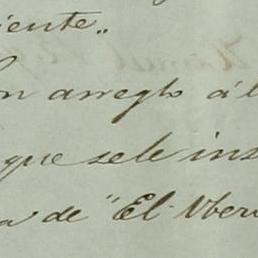 iente„
n arreglo á l
que se le ins
a de "El Uber